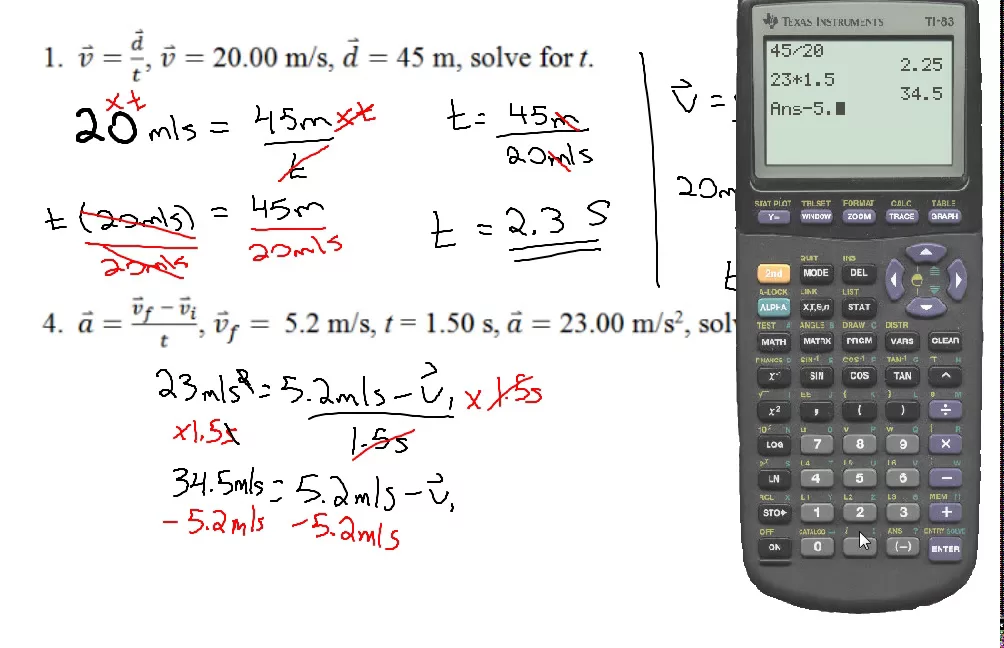 1. v⃗ = d⃗/t, v⃗ = 20.00 m/s, d⃗ = 45 m, solve for t.
×t
20 m/s = 45m/t ×t
t = 45m/20m/s
t (20m/s)/20m/s = 45m/20m/s
t = 2.3 s
v⃗ =
20m
t
4. a⃗ = v⃗f − v⃗i/t, v⃗f = 5.2 m/s, t = 1.50 s, a⃗ = 23.00 m/s², sol
23m/s² = 5.2m/s − v⃗₁/1.5s × 1.5s
×1.5s
34.5m/s = 5.2m/s − v⃗₁
−5.2m/s −5.2m/s
TEXAS INSTRUMENTS TI-83
45/20
2.25
23*1.5
34.5
Ans-5.
STAT PLOT TBLSET FORMAT CALC TABLE
Y= WINDOW ZOOM TRACE GRAPH
QUIT INS
2nd MODE DEL
A-LOCK LINK LIST
ALPHA X,T,θ,n STAT
TEST A ANGLE B DRAW C DISTR
MATH MATRX PRGM VARS CLEAR
SIN⁻¹ COS⁻¹ TAN⁻¹
x⁻¹ SIN COS TAN ^
x² , ( ) ÷
LOG 7 8 9 ×
LN 4 5 6 −
RCL L1 L2 L3 MEM
STO▸ 1 2 3 +
OFF CATALOG ANS ENTRY SOLVE
ON 0 (−) ENTER